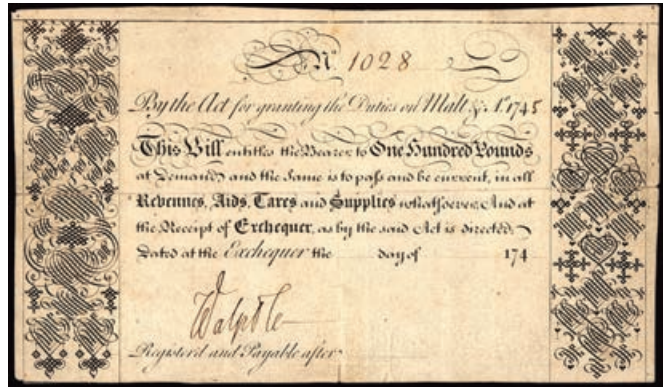 No 1028
By the Act for granting the Duties on Malt &c. Ao. 1745
This Bill entitles the Bearer to One Hundred Pounds
at Demand, and the Same is to pass and be current, in all
Revenues, Aids, Taxes and Supplies whatsoever, And at
the Receipt of Exchequer, as by the said Act is directed.
Dated at the Exchequer the day of 174
Walpole
Registerd and Payable after